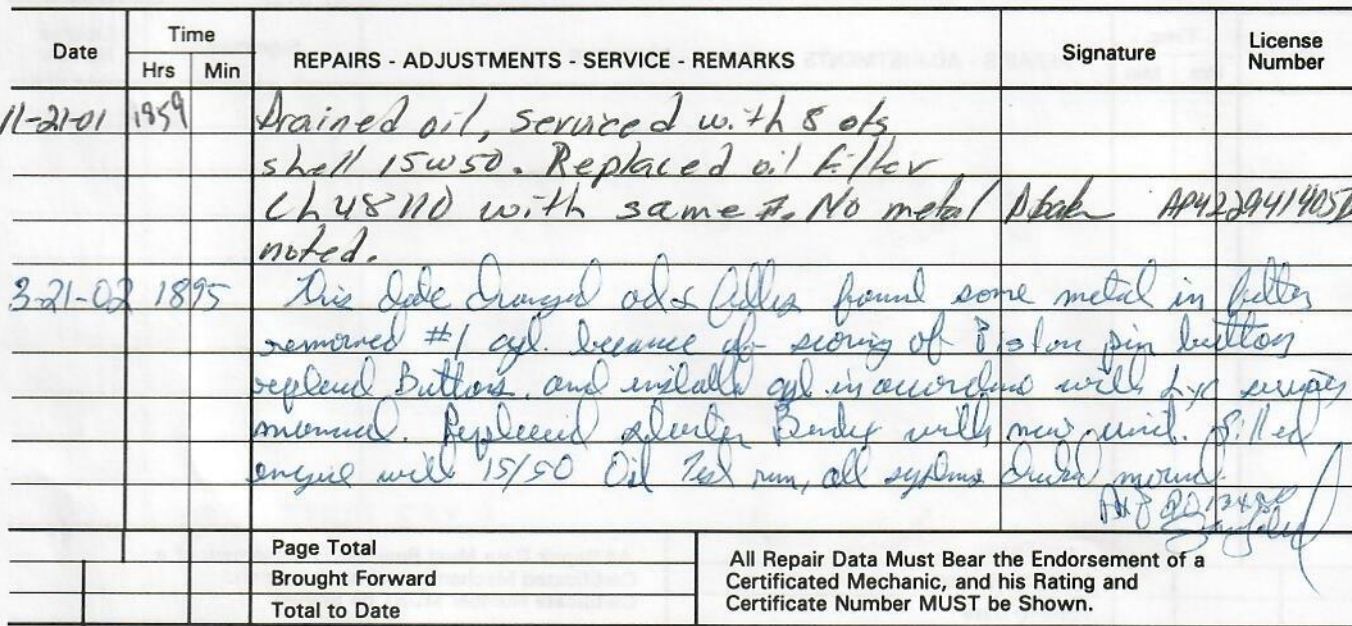 Date Time Hrs Min REPAIRS - ADJUSTMENTS - SERVICE - REMARKS Signature License Number
11-21-01 1859 Drained oil, serviced with 8 qts
shell 15W50. Replaced oil filter
Ch48110 with same #. No metal
noted.
3-21-02 1895 This date changed oil & filter found some metal in filter
removed #1 cyl. because of scoring of Piston pin button
replaced Buttons and install cyl in accordance with Lyc service
manual. Replaced starter Bendix with new unit. Filled
engine with 15/50 Oil Test run, all systems checked normal.
Page Total
Brought Forward
Total to Date
All Repair Data Must Bear the Endorsement of a
Certificated Mechanic, and his Rating and
Certificate Number MUST be Shown.